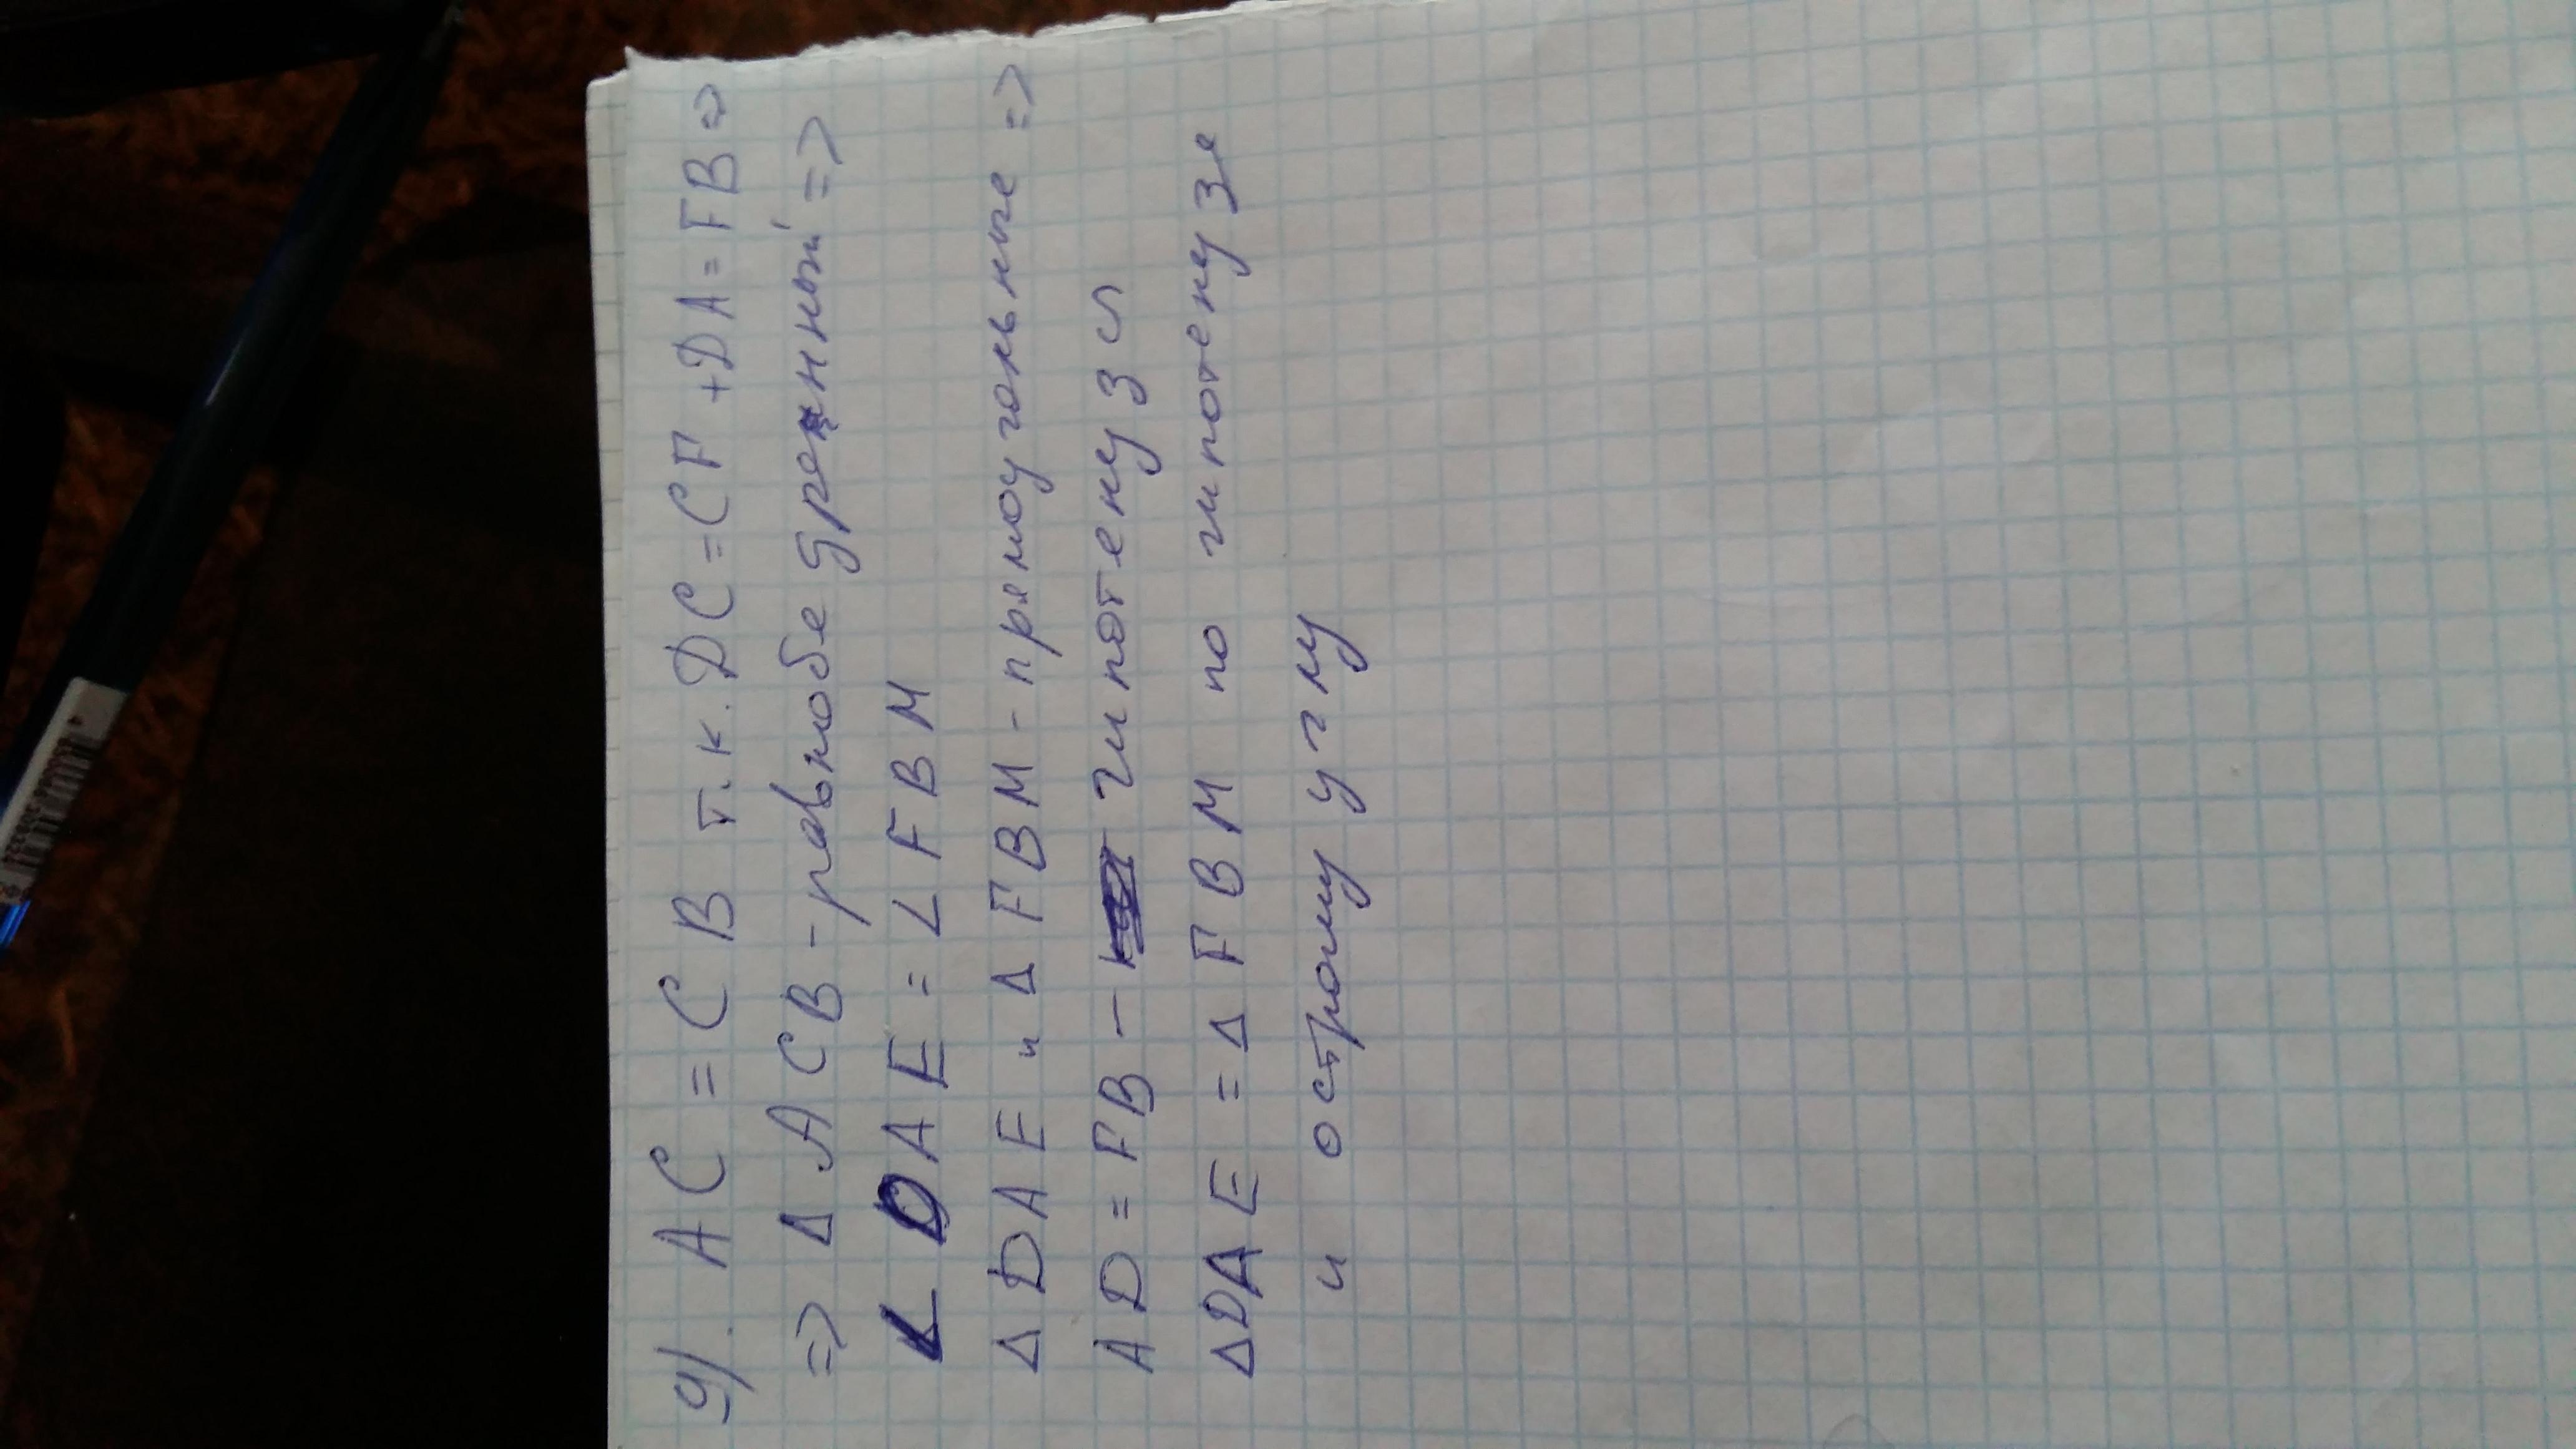 9). AC = CB т.к. DC = CF + DA = FB =>
=> Δ ACB - равнобедренный =>
∠ DAE = ∠ FBM
Δ DAE и Δ FBM - прямоугольные =>
AD = FB - гипотенузы
ΔDAE = Δ FBM по гипотенузе
и острому углу